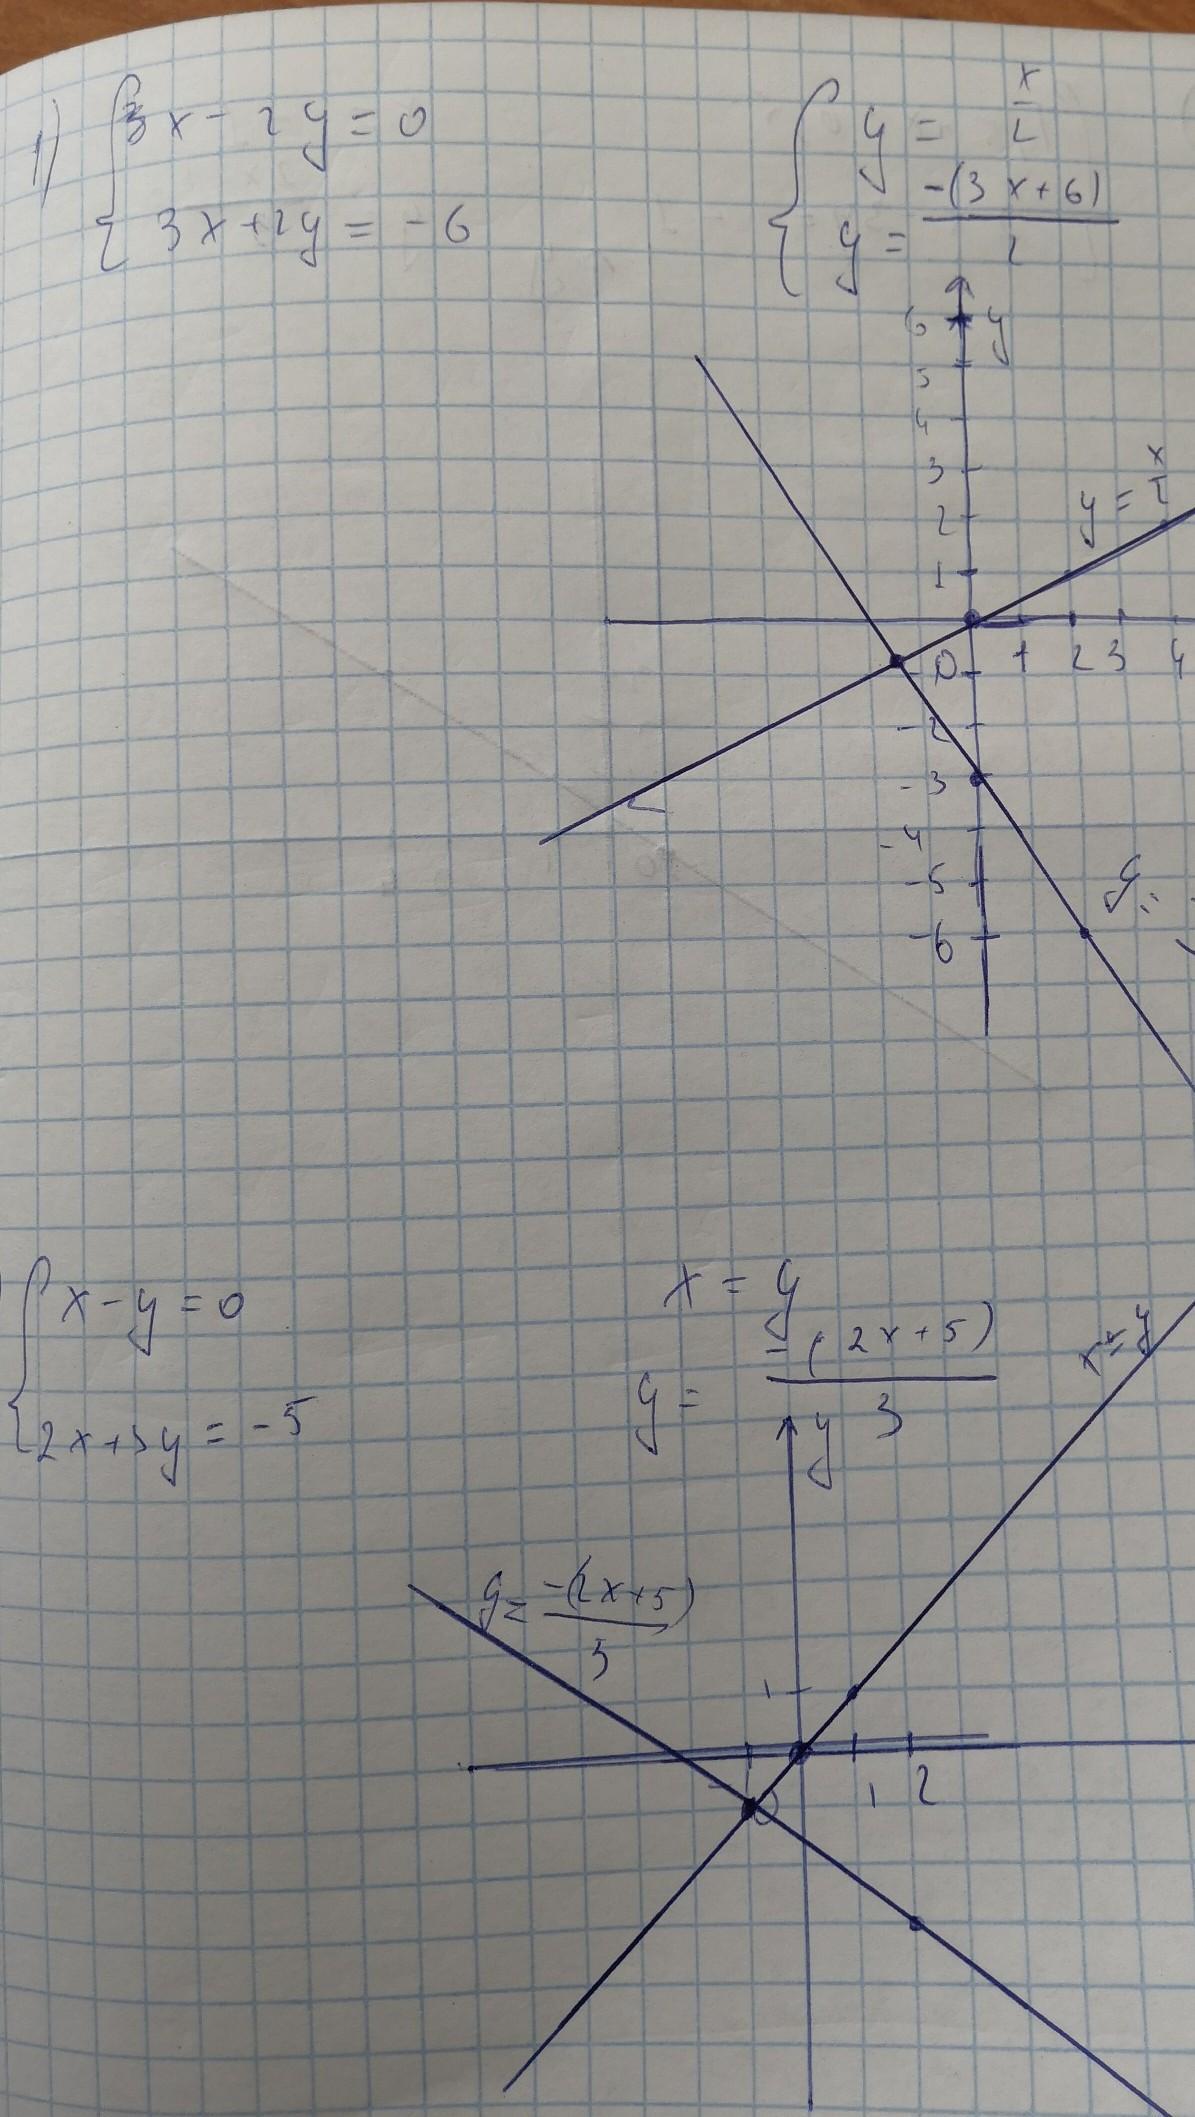 1) 3x - 2y = 0
3x + 2y = -6
y = x/2
y = -(3x+6)/2
y
6
5
4
3
2
1
y = x/2
0 1 2 3 4
-2
-3
-4
-5
-6
y =
x - y = 0
2x + 3y = -5
x = y
y = -(2x+5)/3
x = y
y
y = -(2x+5)/3
1
1 2